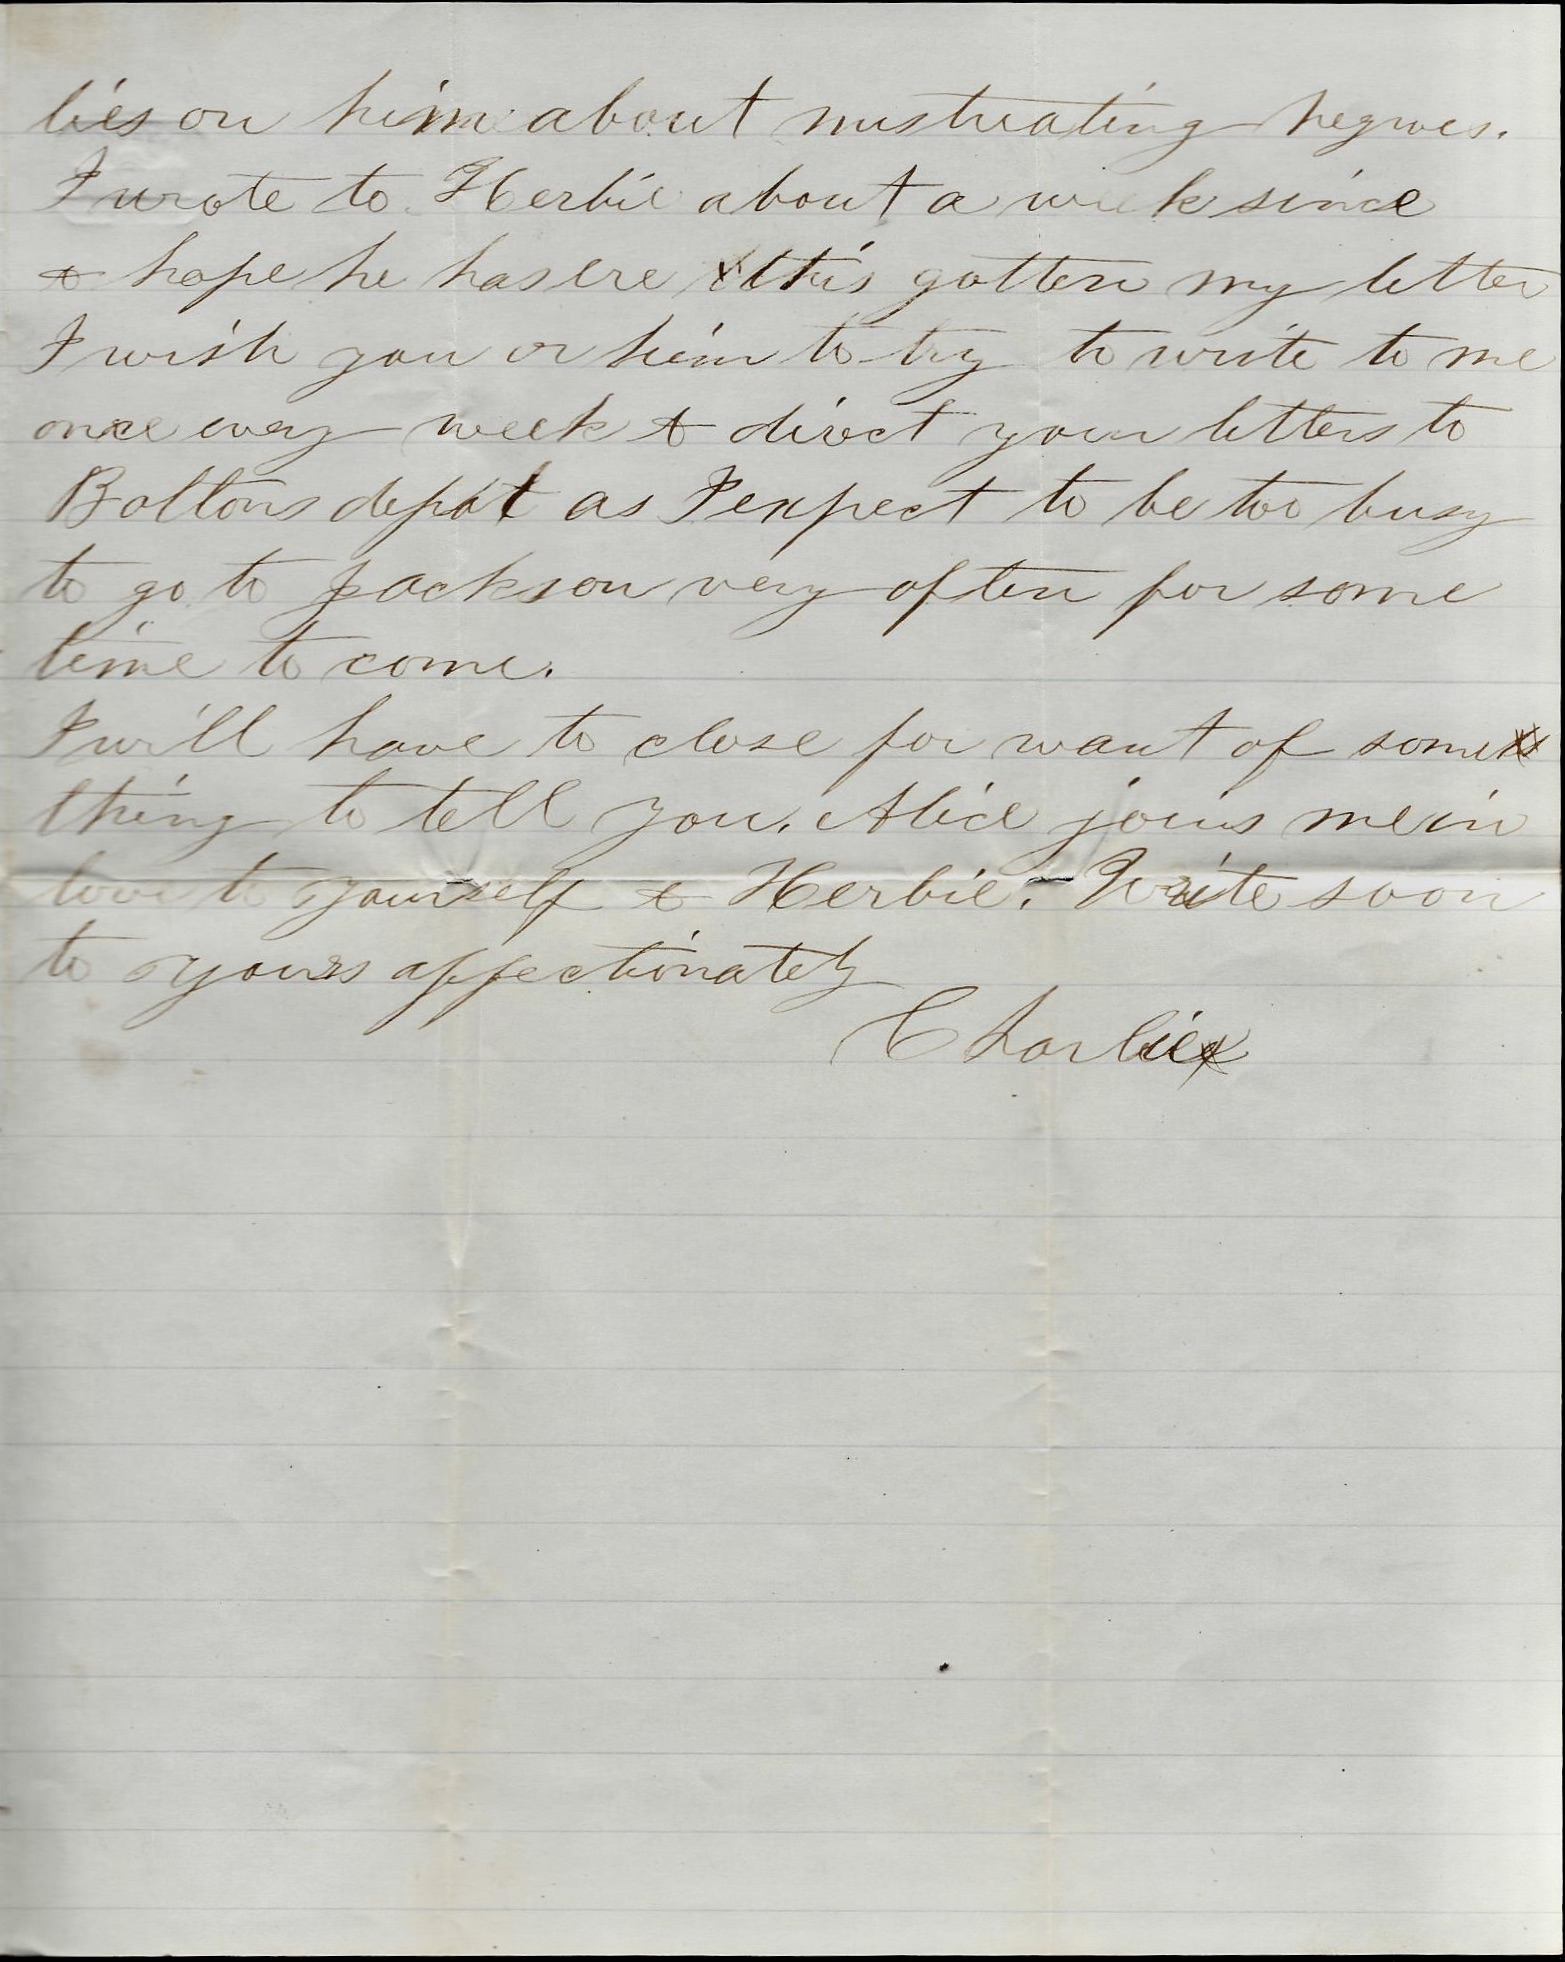 lies on him about mistreating negroes.
I wrote to Herbie about a week since
& hope he has ere this gotten my letter
I wish you or him to try to write to me
once every week & direct your letters to
Boltons depot as I expect to be too busy
to go to Jackson very often for some
time to come.
I will have to close for want of some
thing to tell you. Alice joins me in
love to yourself & Herbie. - Write soon
to yours affectionately
Charlie